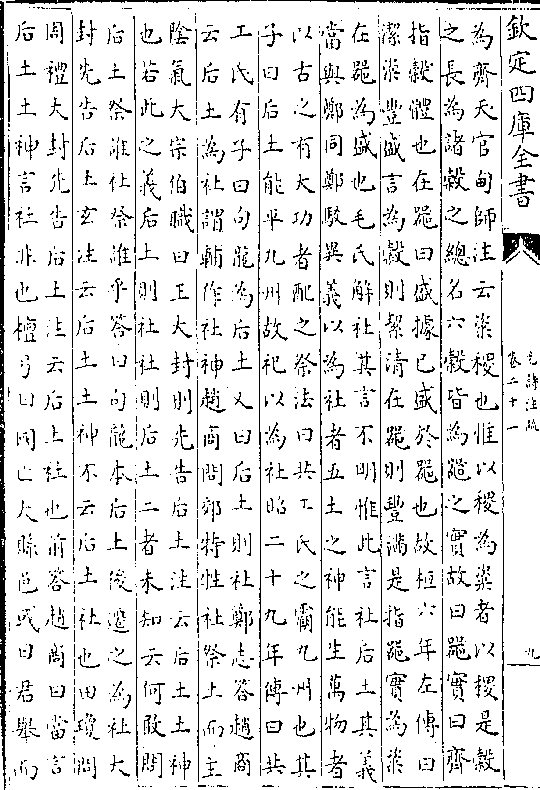 欽定四庫全書
毛詩注疏
卷二十一
九
為齊天官甸師注云粢稷也惟以稷為粢者以稷是穀
之長為諸穀之總名六穀皆為器之實故曰器實曰齊
指穀體也在器曰盛據已盛於器也故桓六年左傳曰
潔粢豐盛言為穀則潔清在器則豐滿是指器實為粢
在器為盛也毛氏解社其言不明惟此言社后土其義
當與鄭同鄭駮異義以為社者五土之神能生萬物者
以古之有大功者配之祭法曰共工氏之霸九州也其
子曰后土能平九州故祀以為社昭二十九年傳曰共
工氏有子曰句龍為后土又曰后土則社鄭志答趙商
云后土為社謂輔作社神趙商問郊特牲社祭土而主
陰氣大宗伯職曰王大封則先告后土注云后土土神
也若此之義后土則社社則后土二者未知云何敢問
后土祭誰社祭誰乎答曰句龍本后土後遷之為社大
封先告后土玄注云后土土神不云后土社也田瓊問
周禮大封先告后土注云后土社也前答趙商曰當言
后土土神言社非也檀弓曰國亡大縣邑或曰君舉而